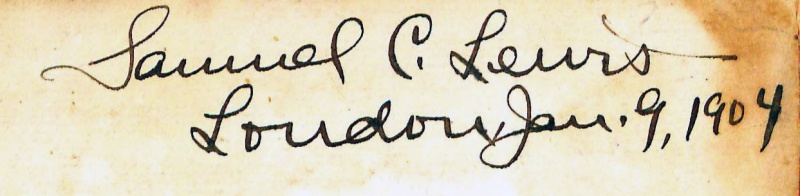 Samuel C. Lewis
London, Jan. 9, 1904